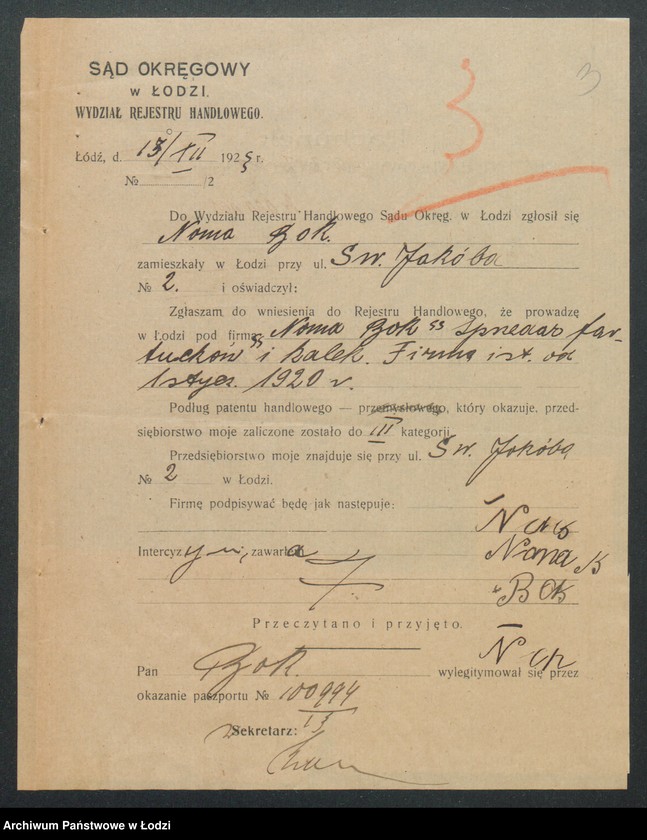 3
3
SĄD OKRĘGOWY
w ŁODZI.
WYDZIAŁ REJESTRU HANDLOWEGO.
Łódź, d. 13/XII 1925 r.
№ /2
Do Wydziału Rejestru Handlowego Sądu Okręg. w Łodzi zgłosił się
Noma Bok.
zamieszkały w Łodzi przy ul. Św. Jakóba
№ 2. i oświadczył:
Zgłaszam do wniesienia do Rejestru Handlowego, że prowadzę
w Łodzi pod firmą „Noma Bok" Sprzedaż far-
tuchów i halek. Firma ist. od
1 stycz. 1920 r.
Podług patentu handlowego — przemysłowego, który okazuje, przed-
siębiorstwo moje zaliczone zostało do III kategorji.
Przedsiębiorstwo moje znajduje się przy ul. Św. Jakóba
№ 2 w Łodzi.
Firmę podpisywać będę jak następuje:
Noma
Intercyzy zawarł
Bok
Przeczytano i przyjęto.
Pan Bok. wylegitymował się przez
okazanie paszportu № 100994
13
Sekretarz:
Archiwum Państwowe w Łodzi